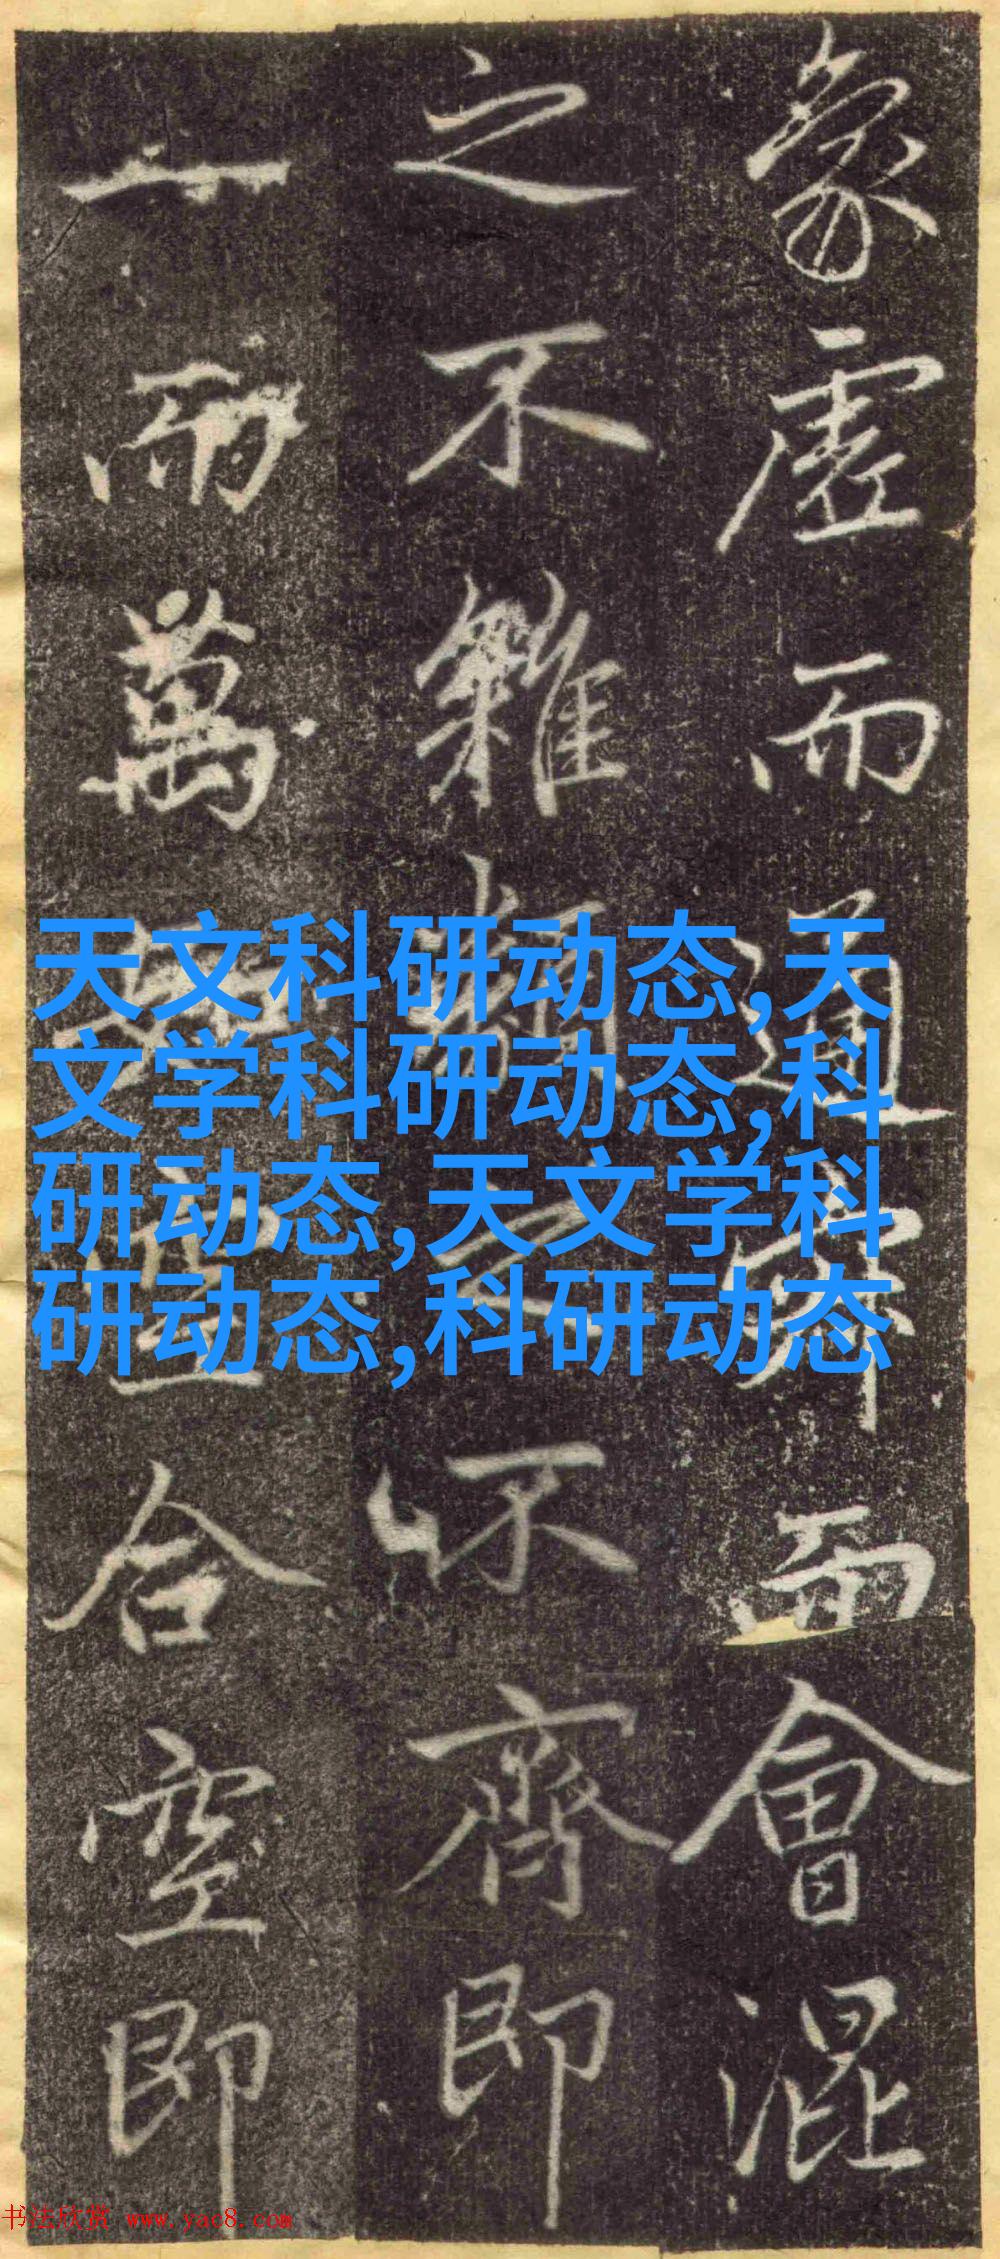 象虛而通而會混
之不雜類之不齊即
一而萬合空即
天文科研动态,天
文学科研动态,科
研动态,天文学科
研动态,科研动态
书法欣赏 www.yac8.com